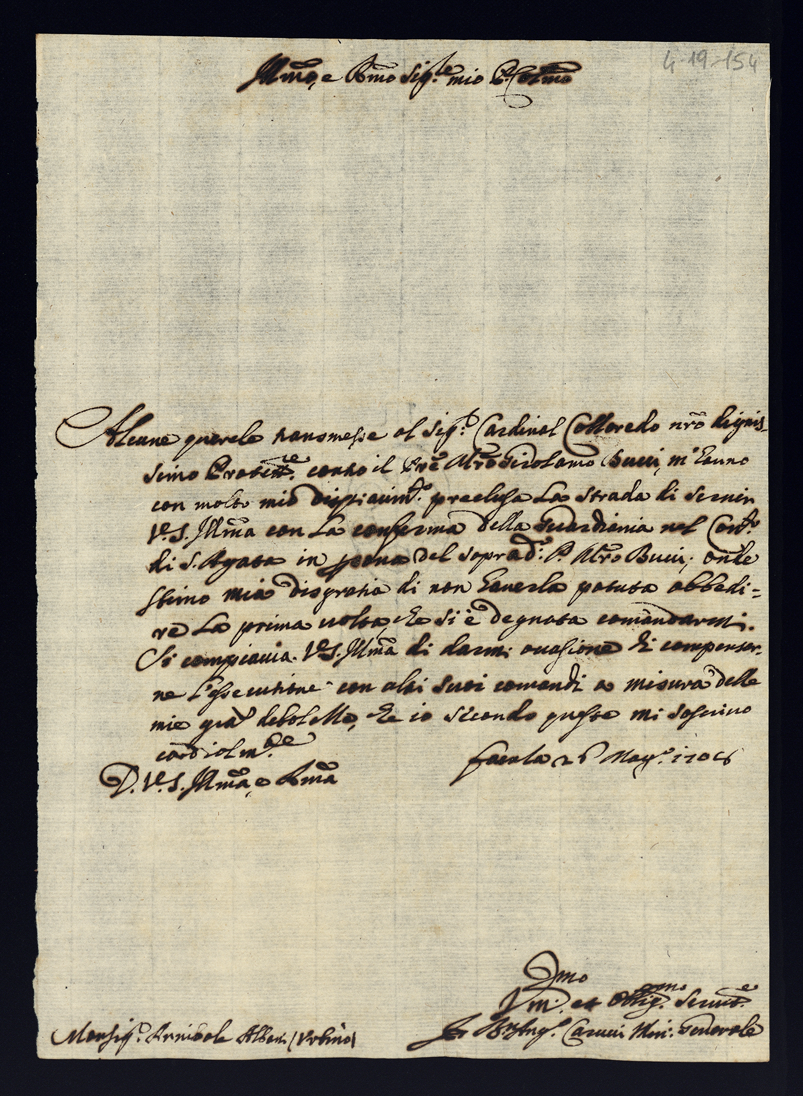 4-19-154
Illmo, e Rmo Sig.re mio P.ron Colmo
Alcune querele transmesse al Sig.r Cardinal Colloredo nro dignis-
simo Protett.re contro il Pre Mro Girolamo Bucci, m'hanno
con molto mio dispiacim.to preclusa la strada di servir
V.S. Illma con la conferma della Guardiania nel Con.to
di S. Agata in del soprad.o P. Mro Bucci; onde
stimo mia disgratia di non haverla potuta obbedi=
re la prima volta, che si è degnata comandarmi.
Si compiaccia V.S. Illma di darmi occasione di compensar-
ne l'essecutione con altri suoi comandi a misura delle
mie debolezze, che io secondo queste mi soscrivo
cordialm.te
D. V.S. Illma, e Rma
26 Mag.o 1706
Dmo
Um. et Obbig.mo Servit.e
Fr. B. Ang.o Carucci Min. Generale
Monsig.r Annibale Albani (Urbino)